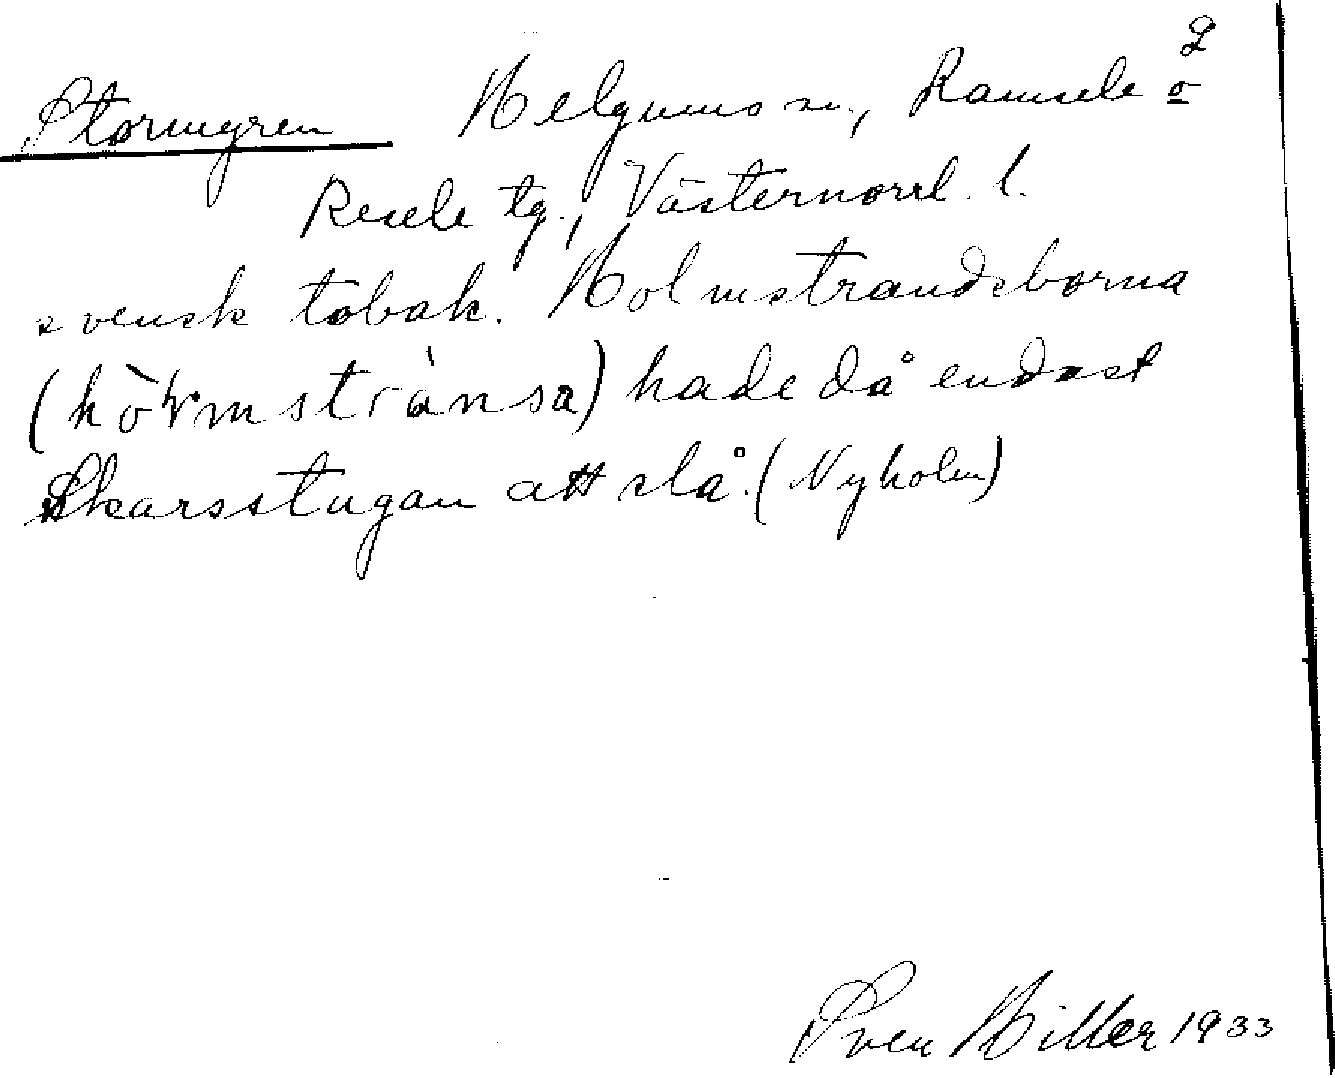 2
Stormyren Helgums sn., Ramsele o
Resele tg., Västernorrl. l.
svensk tobak. Holmstrandsborna
(hòɽmstrànsa) hade då endast
Skarsstugan att slå. (Nyholm)
Sven Hiller 1933